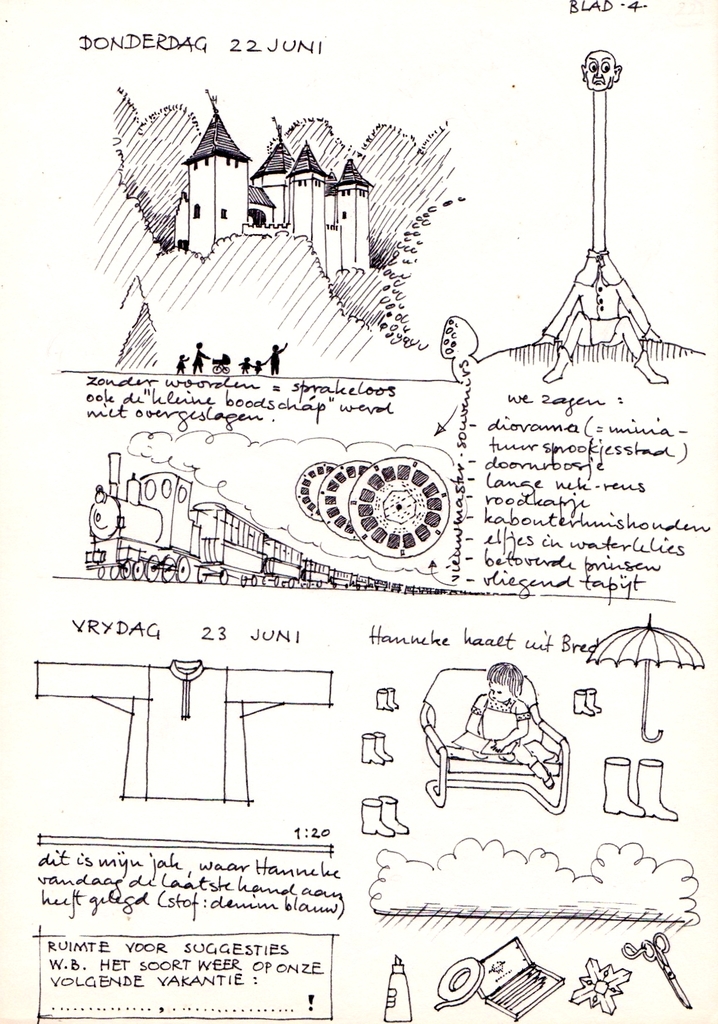 BLAD - 4 -
DONDERDAG 22 JUNI
zonder woorden = sprakeloos
ook de "kleine boodschap" werd
niet overgeslagen.
viewmaster-souvenirs
we zagen :
- diorama (= minia-
tuursprookjesstad)
- doornroosje
- lange nek-reus
- roodkapje
- kabouterhuishouden
- elfjes in waterlelies
- betoverde prinsen
- vliegend tapijt
VRYDAG 23 JUNI
Hanneke haalt uit Bred
1:20
dit is mijn jak, waar Hanneke
vandaag de laatste hand aan
heeft gelegd (stof: denim blauw)
RUIMTE VOOR SUGGESTIES
W.B. HET SOORT WEER OP ONZE
VOLGENDE VAKANTIE :
...................., .................... !